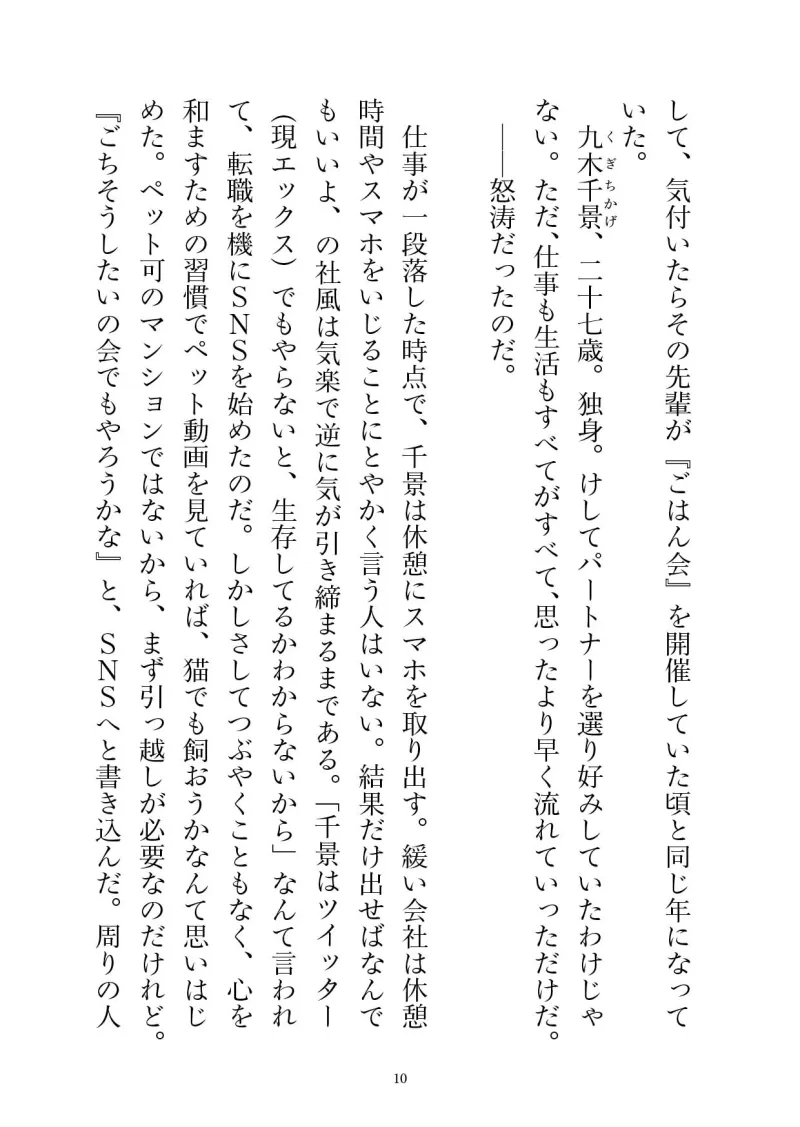 して、気付いたらその先輩が『ごはん会』を開催していた頃と同じ年になって
いた。
九木千景、二十七歳。独身。けしてパートナーを選り好みしていたわけじゃ
くぎちかげ
ない。ただ、仕事も生活もすべてがすべて、思ったより早く流れていっただけだ。
――怒涛だったのだ。
仕事が一段落した時点で、千景は休憩にスマホを取り出す。緩い会社は休憩
時間やスマホをいじることにとやかく言う人はいない。結果だけ出せばなんで
もいいよ、の社風は気楽で逆に気が引き締まるまである。「千景はツイッター
（現エックス）でもやらないと、生存してるかわからないから」なんて言われ
て、転職を機にSNSを始めたのだ。しかしさしてつぶやくこともなく、心を
和ますための習慣でペット動画を見ていれば、猫でも飼おうかなんて思いはじ
めた。ペット可のマンションではないから、まず引っ越しが必要なのだけれど。
『ごちそうしたいの会でもやろうかな』と、SNSへと書き込んだ。周りの人
10